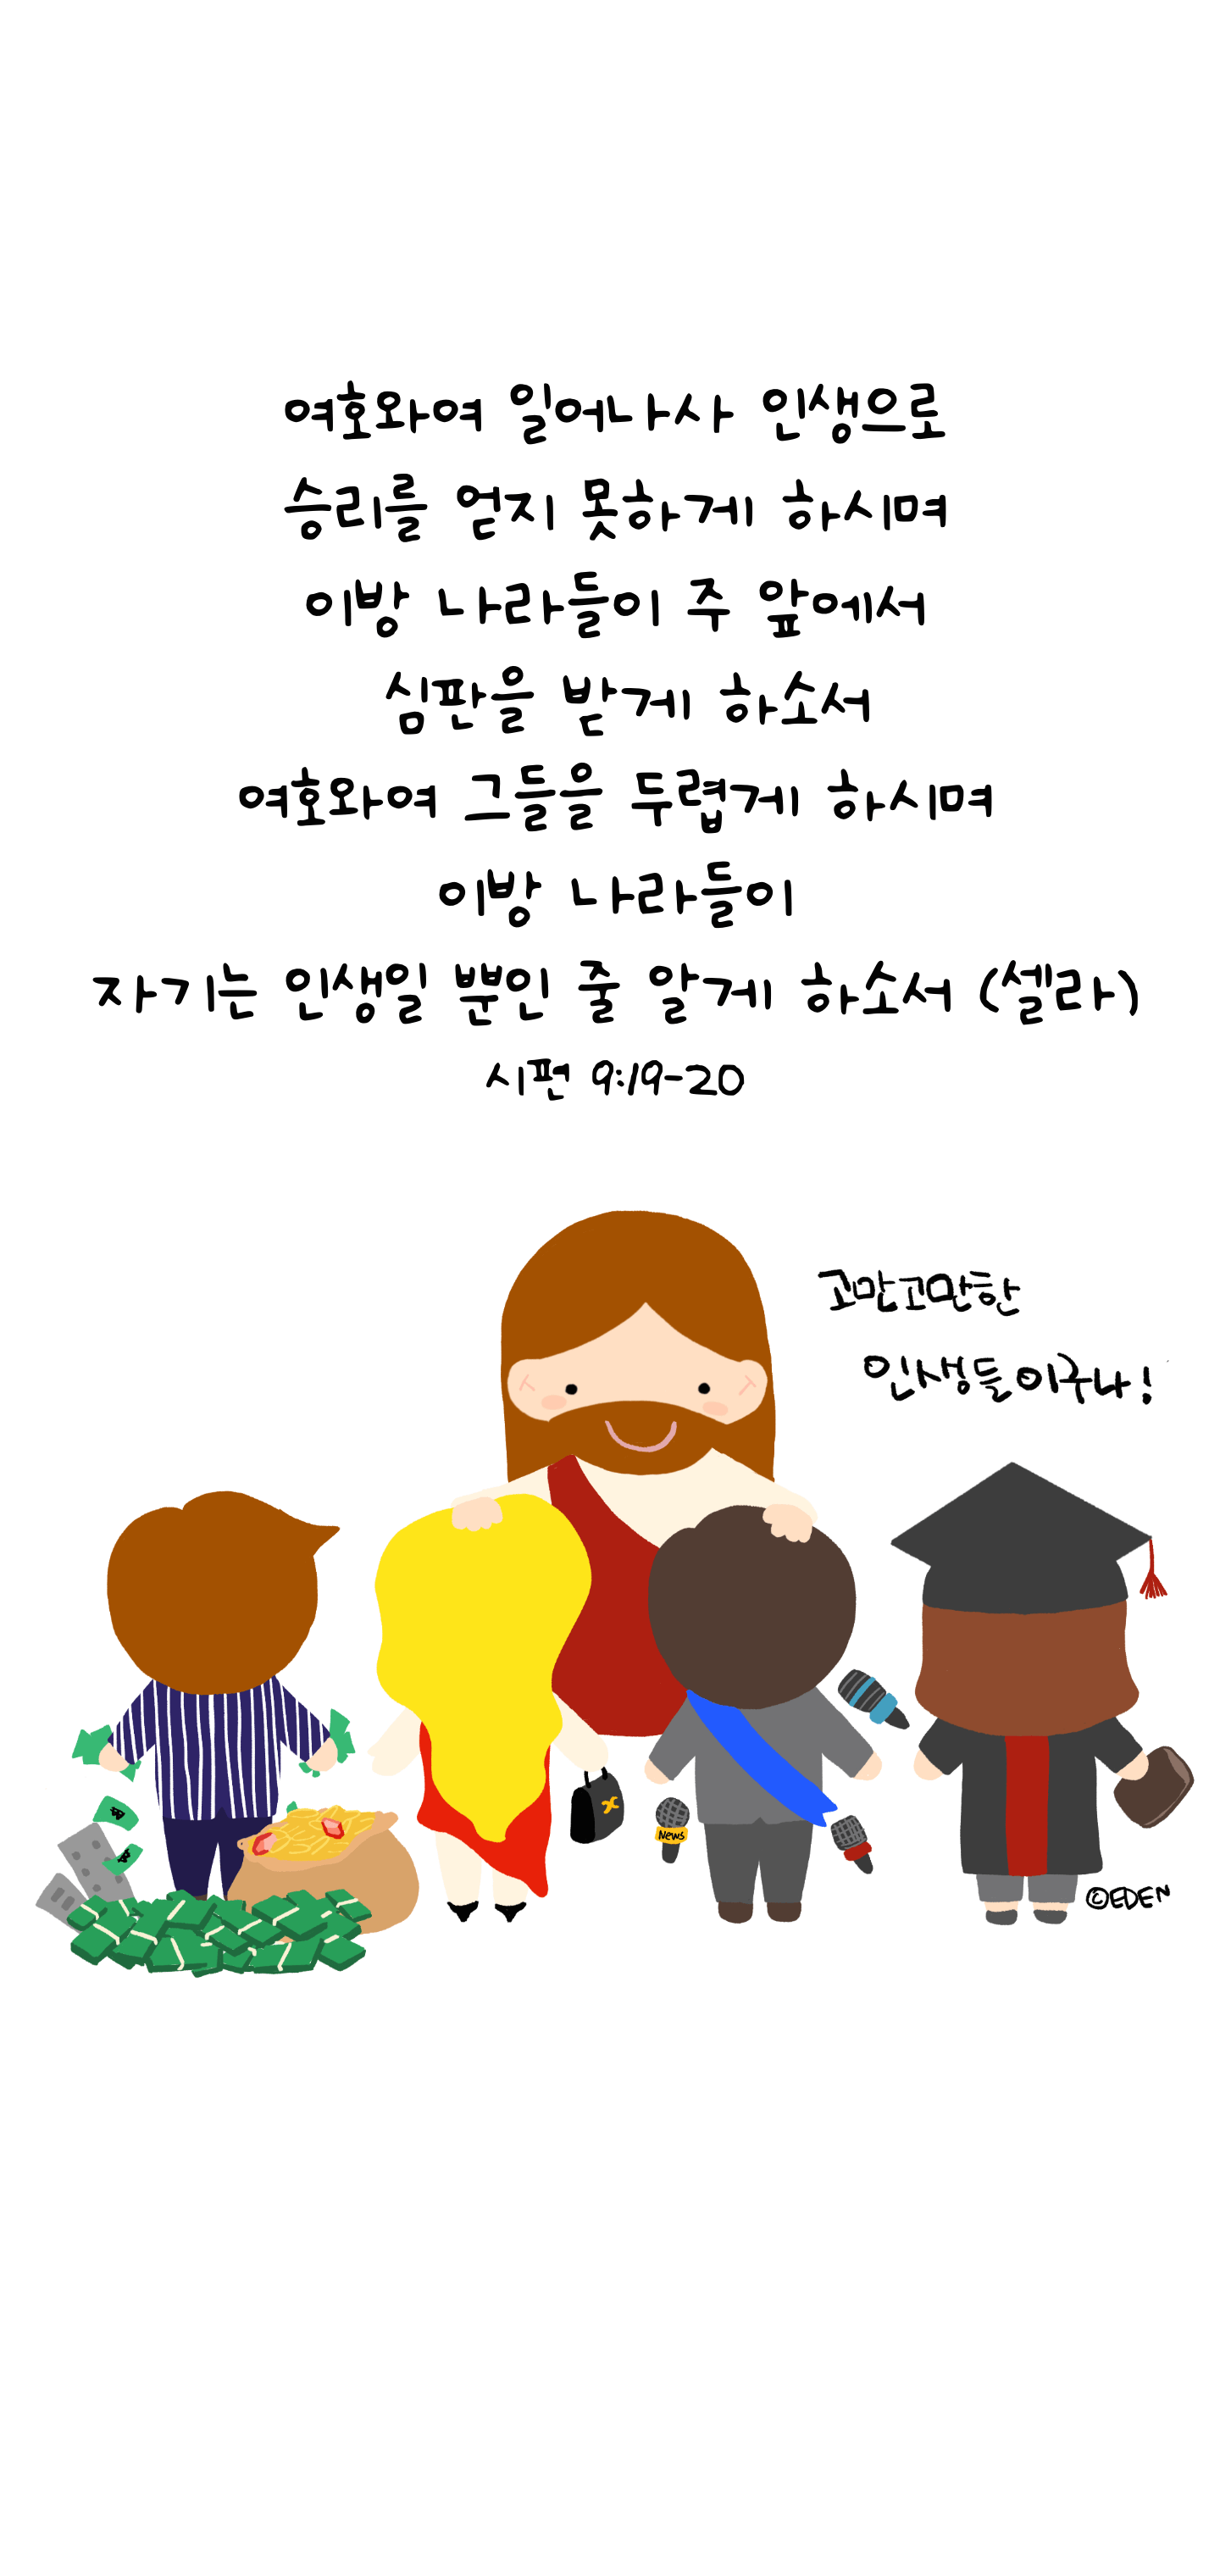 여호와여 일어나사 인생으로
승리를 얻지 못하게 하시며
이방 나라들이 주 앞에서
심판을 받게 하소서
여호와여 그들을 두렵게 하시며
이방 나라들이
자기는 인생일 뿐인 줄 알게 하소서 (셀라)
시편 9:19-20
고만고만한
인생들이구나!
News
©EDEN